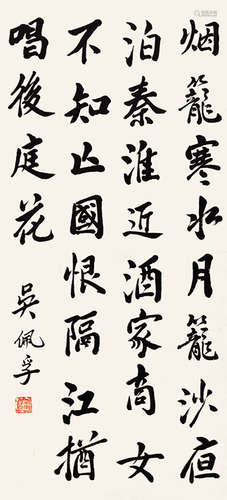 烟籠寒水月籠沙夜
泊秦淮近酒家商女
不知亾國恨隔江猶
唱後庭花
吳佩孚